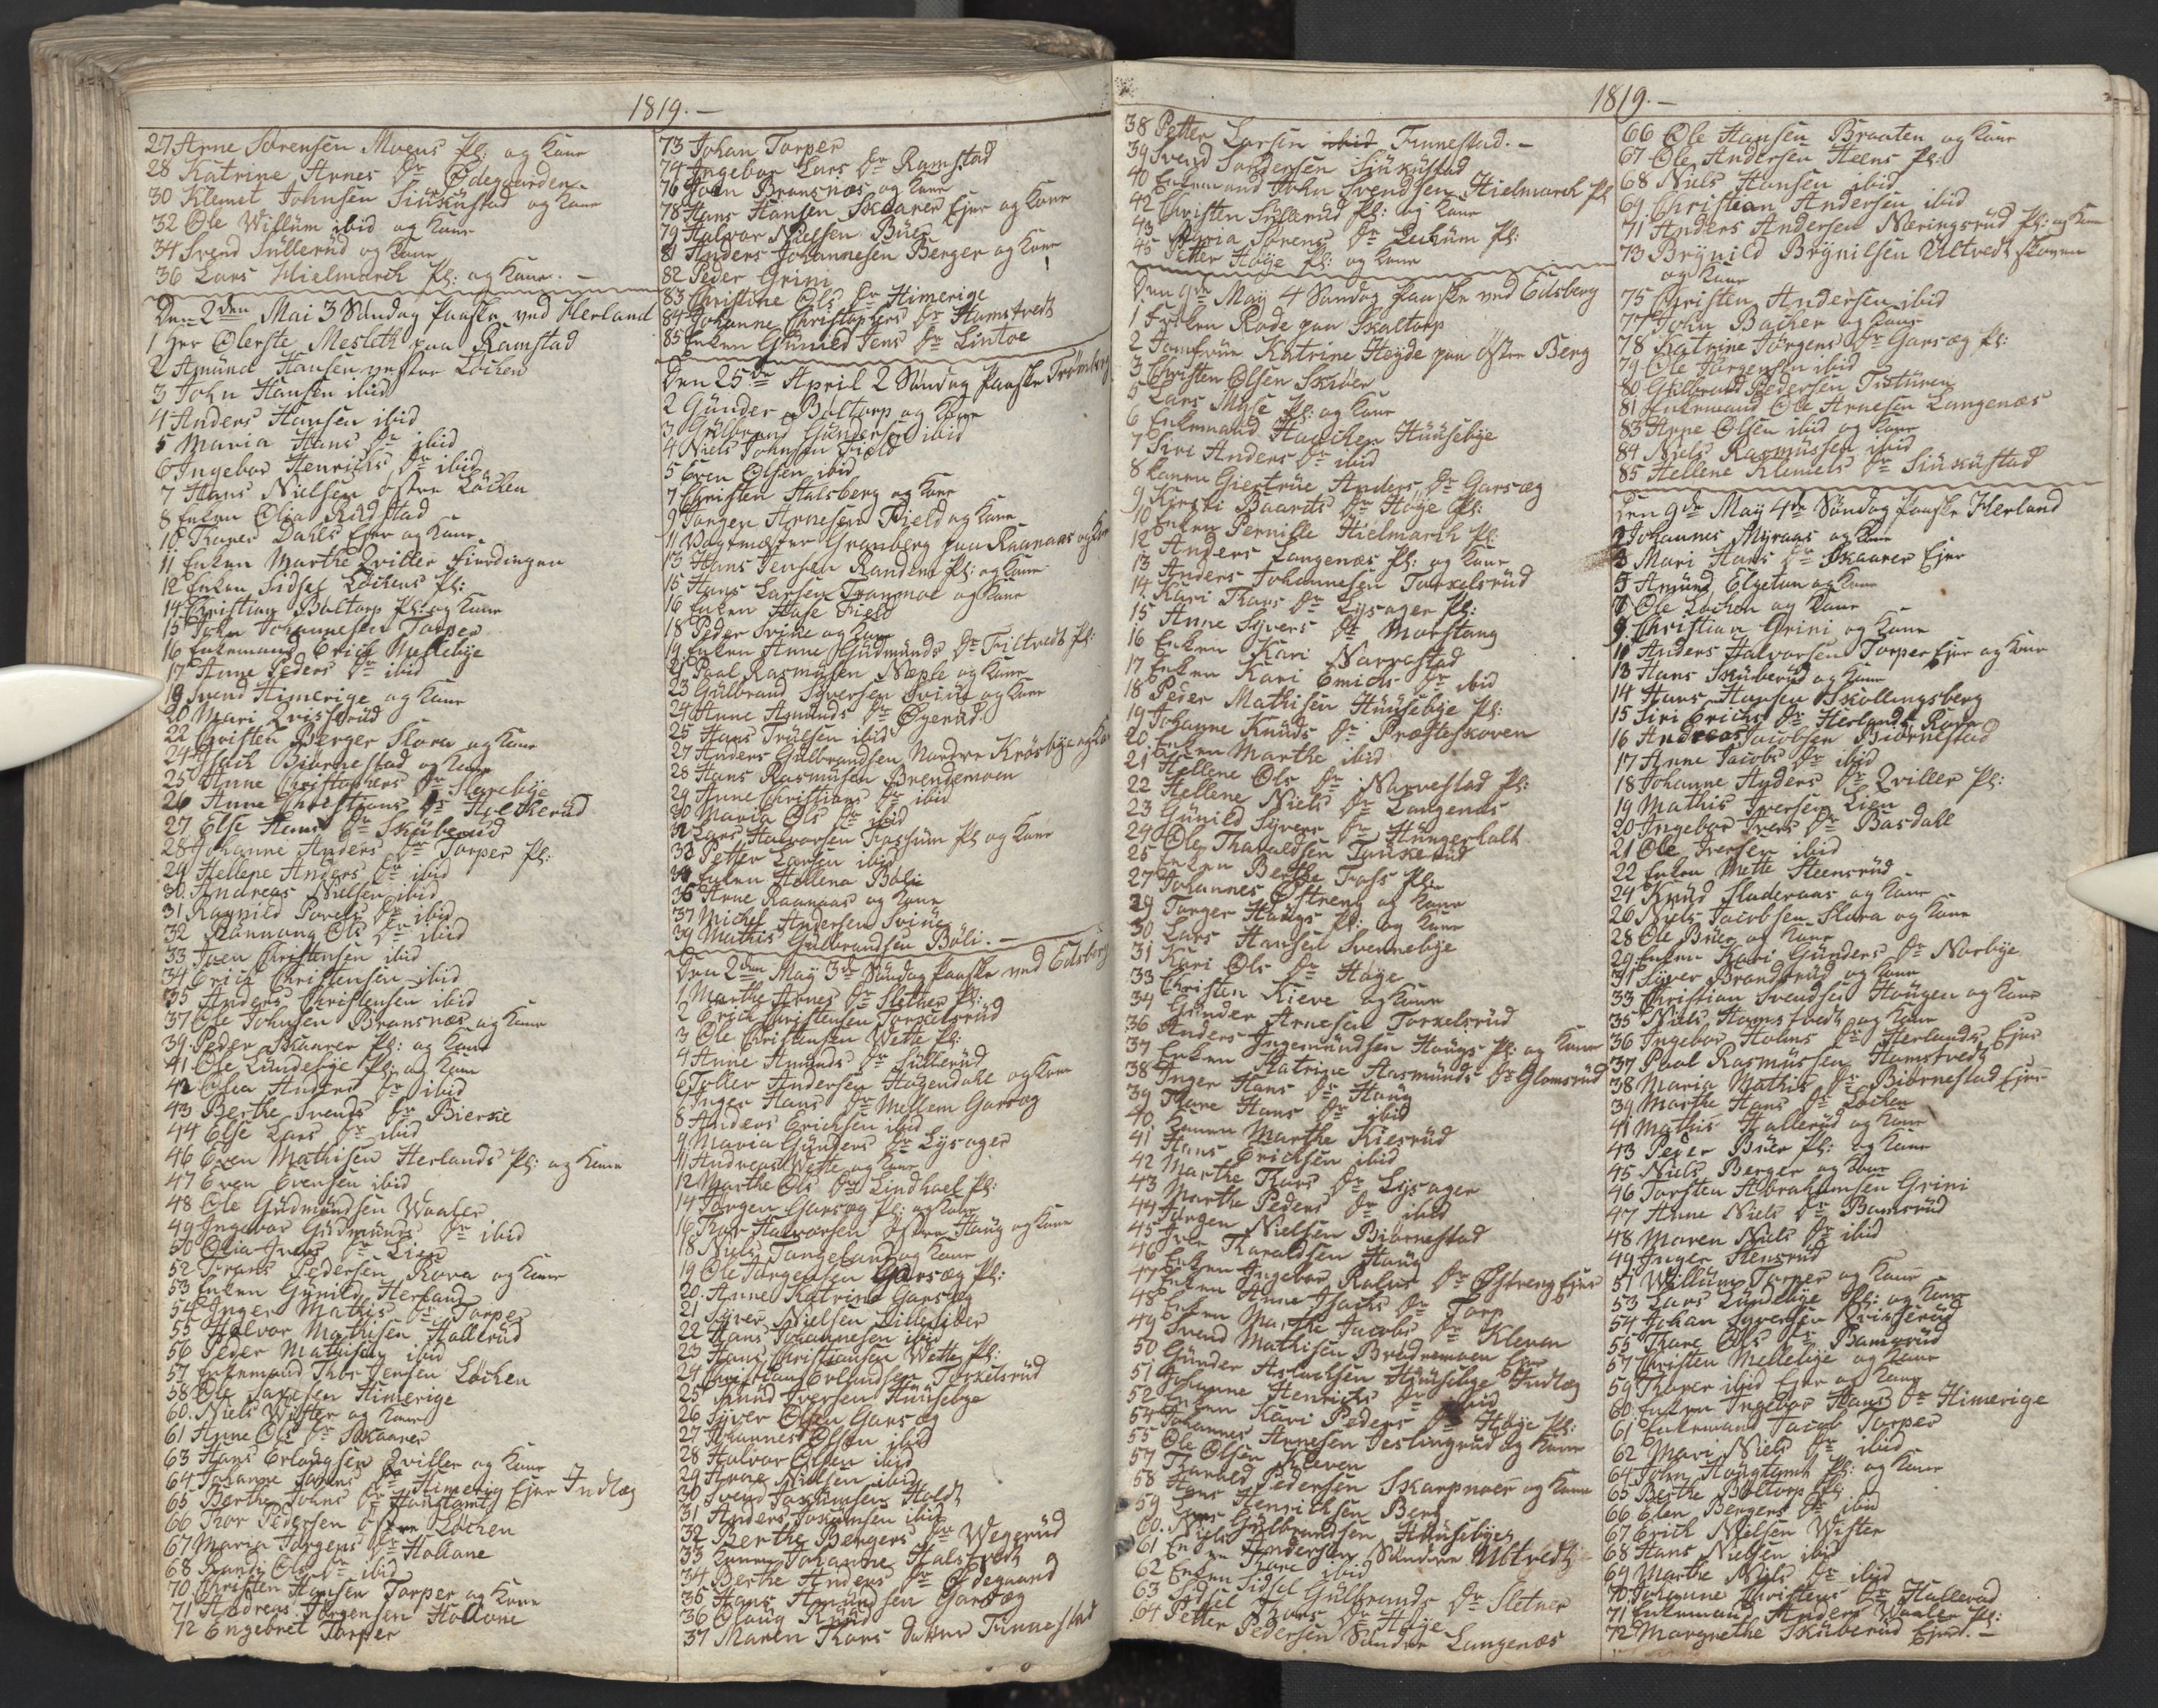 1819.-
27 Arne Sörensen Moens Pl: og Kone
28 Katrine Arnes Dr Ödegaarden
30 Klemet Johnsen Siükustad og Kone
32 Ole Willum ibid og Kone
34 Svend Süllerüd og Kone
36 Lars Hielmarck Pl: og Kone. -
Den 2den Mai 3 Søndag Paaske ved Herland
1 Hr Oleste Mesleth paa Ramstad
2 Amünd Hansen vestre Löchen
3 John Hansen ibid
4 Anders Hansen ibid
5 Maria Hans Dr ibid
6 Ingebor Henrichs Dr ibid
7 Hans Nielsen östre Löchen
8 Enken Olia Rudstad
10 Dahls Ejer og Kone
11 Enken Marthe Qviller Fierdingen
12 Enken Sidsel Löchens Pl:
14 Christian Boltorp Pl: og Kone
15 John Johannesen Torper
16 Enkemand Erich Mellebÿe
17 Anne Peders Dr ibid
19 Svend Himerige og Kone
20 Mari Qvisserüd
22 Christen Berger Slora og Kone
24 Isach Biörnestad og Kone
25 Anne Christophers Dr Harebÿe
26 Anne Christians Dr Holkerüd
27 Else Hans Dr Sküberüd
28 Johanne Anders Dr Torper Pl:
29 Hellene Anders Dr ibid
30 Andreas Nielsen ibid
31 Ragnild Povels Dr ibid
32 Rannoug Ols Dr ibid
33 Iven Christensen ibid
34 Erich Christensen ibid
35 Anders Christensen ibid
37 Ole Johnsen Bransnæs og Kone
39 Peder Skaarer Pl: og Kone
41 Ole Lundebÿe Pl: og Kone
42 Olia Anders Dr ibid
43 Berthe Svends Dr Bierke
44 Else Lars Dr ibid
46 Even Mathisen Herlands Pl: og Kone
47 Even Evensen ibid
48 Ole Gudmundsen Waaler
49 Ingebor Gudmunds Dr ibid
50 Olia Ivers Dr Lien
52 Frans Pedersen Rova og Kone
53 Enken Gunild Herland
54 Inger Mathis Dr Torper
55 Halvor Mathisen Hallerüd
56 Peder Mathisen ibid
57 Enkemand Thor Jensen Löchen
58 Ole Himerige
60 Niels Wister og Kone
61 Anne Ols Dr Skaarer
63 Hans Erlougsen Qviller og Kone
64 Johanne Dr Himerig Ejer Indlæg
65 Berthe Johns Dr Hougtomt
66 Thor Pedersen östre Löchen
67 Maria Jörgens Dr Hollane
68 Randi Ols Dr ibid
70 Christen Hansen Torper og Kone
71 Andreas Jörgensen Hollane
72 Engebret Torper
73 Johan Torper
74 Ingebor Lars Dr Ramstad
76 John Bransnæs og Kone
78 Hans Hansen Skaarer Ejer og Kone
79 Halvor Nielsen Büer
81 Anders Johannesen Berger og Kone
82 Peder Grini
83 Christine Ols Dr Himerige
84 Johanne Christophers Dr Hamstvedt
85 Enken Gunild Jens Dr Lintoe
Den 25de April 2 Søndag Paaske Trömborg
2 Günder Boltorp og Kone
3 Gülbrand Gundersen ibid
4 Niels Johnsen Field
5 Even Olsen ibid
7 Christen Halsberg og Kone
9 Jorgen Arnesen Field og Kone
11 Vagtmester Granberg paa Raanaas og Kone
13 Hans Jensen Randem Pl: og Kone
15 Hans Larsen og Kone
16 Enken Aase Field
18 Peder Svine og Kone
19 Enken Anne Gudmünds Dr Filtvedt Pl:
21 Paal Rasmusen Næple og Kone
23 Gülbrand Sÿversen Sviüe og Kone
24 Anne Amunds Dr Ögerud
25 Hans Trulsen ibid
27 Anders Gulbrandsen Nordre Krosbÿe og Kone
28 Hans Rasmusen Brendemoen
29 Anne Christians Dr ibid
30 Maria Ols Dr ibid
32 Lars Halvorsen Fossum Pl og Kone
33 Petter Larsen ibid
34 Enken Hellena Böli
36 Arne Raanaas og Kone
37 Michel Andersen Sviüe
39 Mathis Gulbrandsen Böli. -
Den 2den Maÿ 3de Søndag Paaske ved Eidsberg
1 Marthe Arnes Dr Slether Pl:
2 Erich Christensen Torkelsrüd
3 Ole Christensen Wette Pl:
4 Anne Amunds Dr Süllerüd
6 Toller Andersen Hagendahl og Kone
7 Inger Hans Dr Mellem Garsæg
8 Anders Erichsen ibid
9 Maria Günders Dr Lÿsager
11 Andreas Wette og Kone
12 Marthe Ols Dr Lindhoel Pl:
14 Jörgen Garsæg Pl: og Kone
16 Thor Halvorsen östre Haug og Kone
18 Niels Tangeland og Kone
19 Ole Jörgensen Garsæg Pl:
20 Anne Katrine Garsæg
21 Sÿver Nielsen
22 Hans Johannesen ibid
23 Hans Christiansen Wette Pl:
24 Christian Erlandsen Torkelsrüd
25 Knud Iversen Huusebÿe
26 Sÿver Olsen Garsæg
27 Johannes Olsen ibid
28 Halvor Olsen ibid
29 Arne Nielsen ibid
30 Svend Joxumsen Holdt
31 Anders Joxumsen ibid
32 Berthe Bergers Dr Wegerüd
33 Konen Johanne Halstvedt
34 Berthe Anders Dr Ödegaard
35 Hans Amundsen Garsæg
36 Olaug Knud
37 Maren Thors Datter Finnestad
1819.-
38 Petter Larsen ibid Finnestad. -
39 Svend Siükustad
40 Enkemand John Svendsen Hielmarck Pl
42 Christen Süllerüd Pl: og Kone
43 Maria Sörens Dr Pl:
45 Petter Höÿe Pl: og Kone
Den 9de Maÿ 4 Søndag Paaske ved Eidsberg
1 Frøken Rode paa Skaltorp
2 Jomfrue Katrine Høÿde paa Östre Berg
3 Christen Olsen Sköer
5 Lars Mÿse Pl: og Kone
6 Enkemand Haachen Huusebÿe
7 Siri Anders Dr ibid
8 Konen Giertrüe Anders Dr Garsæg
9 Kirsti Baards Dr Höÿe Pl:
10 Enken Pernille Hielmarck Pl:
12 Anders Langenæs Pl: og Kone
13 Anders Johannesen Torkelsrüd
14 Kari Thors Dr Lÿsager Pl:
15 Anne Sÿvers Dr Morstang
16 Enken Kari Narvestad
17 Enken Kari Emichs Dr ibid
18 Peder Mathisen Huusebÿe Pl:
19 Johanne Knuds Dr Præsteskoven
20 Enken Marthe ibid
21 Hellene Ols Dr Narvestad Pl:
22 Hellene Niels Dr Langenæs
23 Günild Sÿvers Dr Hüngerholt
24 Ole Tharaldsen Tünkerüd
25 Enken Berthe Foss Pl:
27 Johannes Östreng og Kone
29 Torger Haugs Pl: og Kone
30 Lars Hansen Svennebÿe
31 Kari Ols Dr Höÿe
33 Christen Kieve og Kone
34 Günder Arnesen Torkelsrüd
36 Anders Ingemundsen Haugs Pl: og Kone
37 Enken Katrine Aasmünds Dr Glomsrüd
38 Inger Hans Dr Haug
39 Thore Hans Dr ibid
40 Konen Marthe Kiesrüd
41 Hans Erichsen ibid
42 Marthe Thors Dr Lÿsager
43 Marthe Peders Dr ibid
44 Jörgen Nielsen Biörnestad
45 Iver Tharaldsen Haug
46 Enken Ingebor Dr Östreng Ejer
47 Enken Anne Isachs Dr Torp
48 Enken Marthe Jacobs Dr Kleven
49 Svend Mathisen Brendemoen Ejer
50 Günder Aslachsen Huusebÿe Indlæg
51 Johanne Henrichs Dr ibid
52 Enken Kari Peders Dr Höÿe Pl:
54 Johannes Arnesen Jeslingrud og Kone
55 Ole Olsen Kleven
57 Tharald Pedersen Skarpnoer og Kone
58 Hans Henrichsen Berg
59 Lars Gülbrandsen Huusebÿe
60 Niels Andersen Søndre Ultvedt
61 Enken Thore ibid
62 Enken Sidsel Gülbrands Dr Sletner
63 Sidsel Thors Dr Höÿe
64 Petter Pedersen Søndre Langenæs
66 Ole Hansen Braaten og Kone
67 Ole Andersen Heens Pl:
68 Niels Hansen ibid
69 Christian Andersen ibid
71 Anders Andersen Næringsrüd Pl: og Kone
73 Brÿnild Brÿnilsen Ultvedt skoven
og Kone
75 Christen Andersen ibid
77 John Bacher og Kone
78 Katrine Jörgens Dr Garsæg Pl:
79 Ole Jörgensen ibid
80 Gülbrand Pedersen
81 Enkemand Ole Arnesen Langenæs
83 Arne Olsen ibid og Kone
84 Niels Rasmüssen ibid
85 Hellene Klemets Dr Siükustad
Den 9de Maÿ 4de Søndag Paaske Herland
2 Johannes Mÿraas og Kone
3 Mari Hans Dr Skaarer Ejer
5 Amünd Elgetun og Kone
7 Ole Löchen og Kone
9 Christian Grini og Kone
11 Anders Halvorsen Torper Ejer og Kone
13 Hans Sküberüd og Kone
14 Hans Hansen Skollungsberg
15 Siri Erichs Dr Herlands Rova
16 Andreas Jacobsen Biörnestad
17 Anne Jacobs Dr ibid
18 Johanne Anders Dr Qviller Pl:
19 Mathis Iversen Lien
20 Ingebor Ivers Dr Basdahl
21 Ole Iversen ibid
22 Enken Mette Steensrüd
24 Knud Sladeraas og Kone
26 Niels Jacobsen Slora og Kone
28 Ole Büer og Kone
29 Enken Kari Günders Dr Norbÿe
31 Sÿver Brandsrüd og Kone
33 Christian Svendsen Hougen og Kone
35 Niels Hamstvedt og Kone
36 Ingebor Holms Dr Herlands Ejer
37 Paal Rasmüssen Hamstvedt
38 Maria Mathis Dr Biörnestad Ejer
39 Marthe Hans Dr Löchen
41 Mathis Hallerüd og Kone
43 Peder Büer Pl: og Kone
45 Niels Berger og Kone
46 Torsten Abrahamsen Grini
47 Anne Niels Dr Bamsrüd
48 Maren Niels Dr ibid
49 Inger Stensrüd
51 Willum Torper og Kone
53 Lars Lundebÿe Pl: og Kone
54 Johan Sÿversen Qvisserüd
55 Thore Ols Dr Bamsrüd
57 Christen Mellebÿe og Kone
59 Thorer ibid Ejer og Kone
60 Enken Ingebor Hans Dr Himerige
61 Enkemand Jacob Torper
62 Mari Niels Dr ibid
64 John Hougtomt Pl: og Kone
65 Berthe Boltorp Pl:
66 Elen Bergers Dr ibid
67 Erich Nielsen Wister
68 Hans Nielsen ibid
69 Marthe Niels Dr ibid
70 Johanne Christens Dr Hallerud
71 Enkemand Anders Waaler Pl:
72 Margrethe Sküberüd Ejer. -